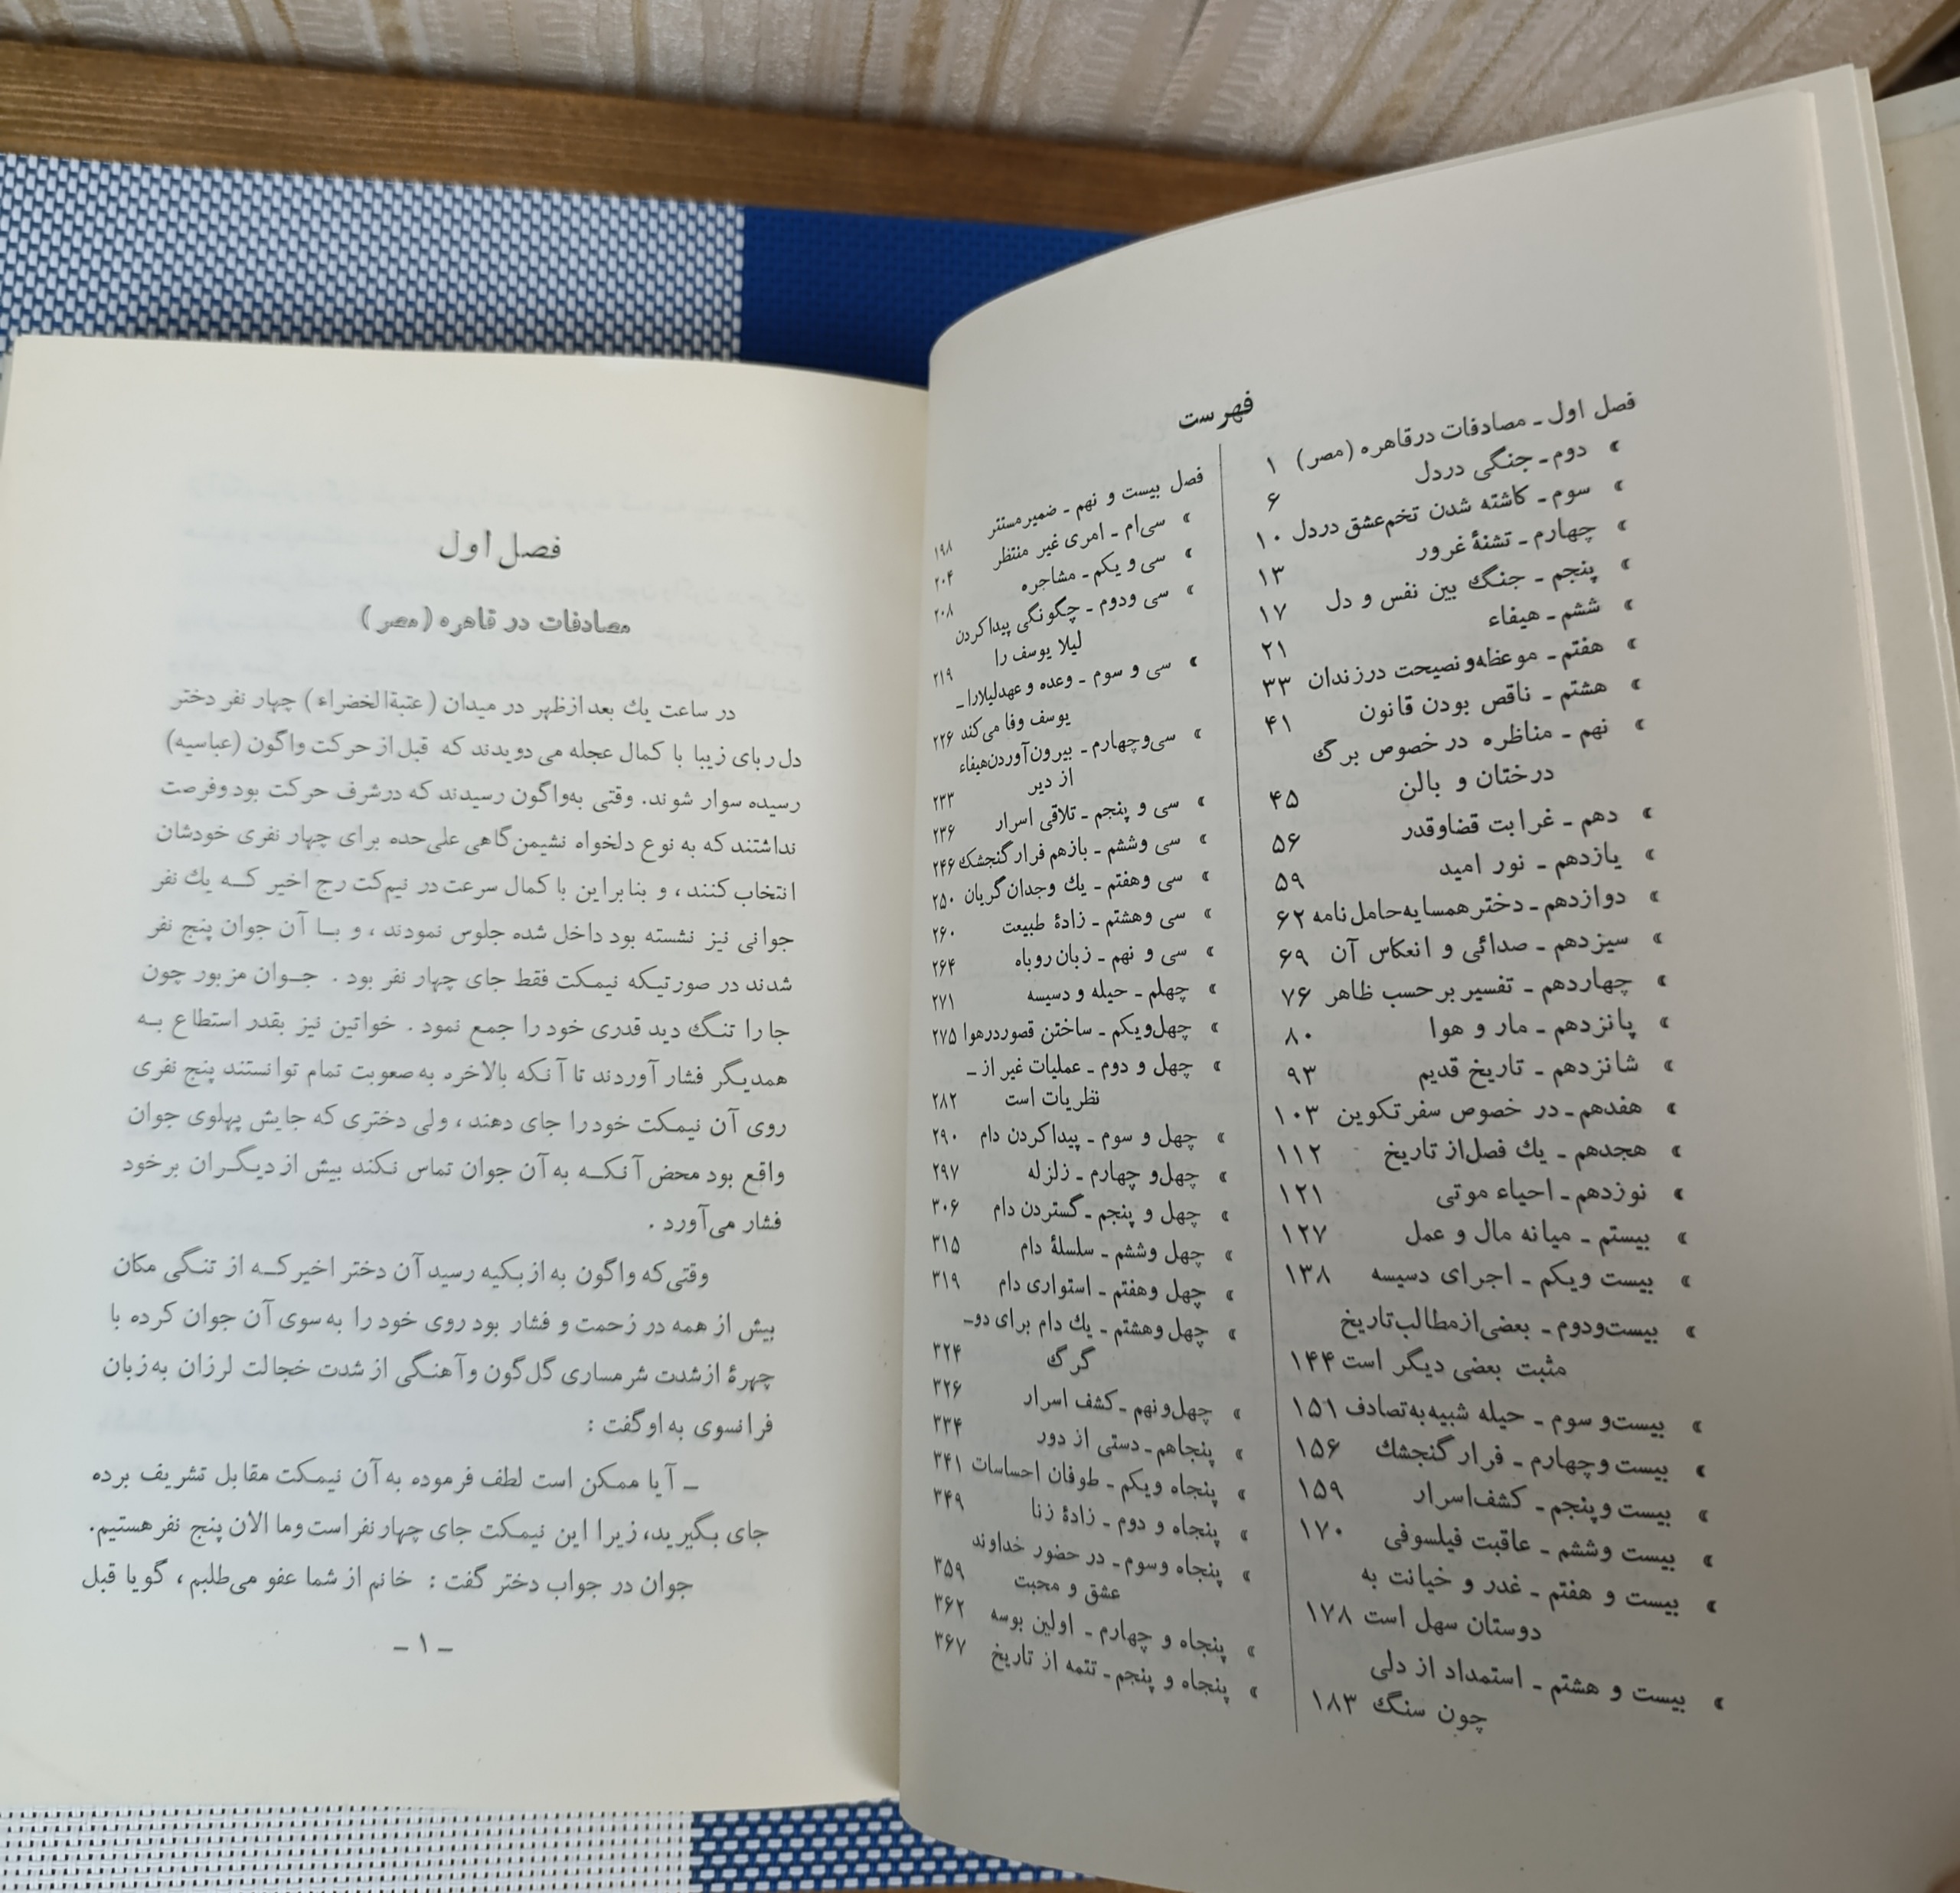 فهرست
فصل اول ـ مصادفات درقاهره (مصر) ۱
» دوم ـ جنگی دردل ۶
» سوم ـ کاشته شدن تخم‌عشق دردل ۱۰
» چهارم ـ تشنهٔ غرور ۱۳
» پنجم ـ جنگ بین نفس و دل ۱۷
» ششم ـ هیفاء ۲۱
» هفتم ـ موعظه‌و نصیحت درزندان ۳۳
» هشتم ـ ناقص بودن قانون ۴۱
» نهم ـ مناظره در خصوص برگ
درختان و بالن ۴۵
» دهم ـ غرابت قضاوقدر ۵۶
» یازدهم ـ نور امید ۵۹
» دوازدهم ـ دختر همسایه‌حامل‌نامه ۶۲
» سیزدهم ـ صدائی و انعکاس آن ۶۹
» چهاردهم ـ تفسیر برحسب ظاهر ۷۶
» پانزدهم ـ مار و هوا ۸۰
» شانزدهم ـ تاریخ قدیم ۹۳
» هفدهم ـ در خصوص سفر تکوین ۱۰۳
» هجدهم ـ یك فصل‌از تاریخ ۱۱۲
» نوزدهم ـ احیاء موتی ۱۲۱
» بیستم ـ میانه مال و عمل ۱۲۷
» بیست ویکم ـ اجرای دسیسه ۱۳۸
» بیست‌ودوم ـ بعضی‌ازمطالب‌تاریخ
مثبت بعضی دیگر است ۱۴۴
» بیست‌و سوم ـ حیله شبیه‌به‌تصادف ۱۵۱
» بیست وچهارم ـ فرار گنجشك ۱۵۶
» بیست وپنجم ـ کشف‌اسرار ۱۵۹
» بیست وششم ـ عاقبت فیلسوفی ۱۷۰
» بیست و هفتم ـ غدر و خیانت به
دوستان سهل است ۱۷۸
» بیست و هشتم ـ استمداد از دلی
چون سنگ ۱۸۳
فصل بیست و نهم ـ ضمیرمستتر ۱۹۸
» سی‌ام ـ امری غیر منتظر ۲۰۴
» سی و یکم ـ مشاجره ۲۰۸
» سی ودوم ـ چگونگی پیداکردن
لیلا یوسف را ۲۱۹
» سی و سوم ـ وعده و عهدلیلارا ـ
یوسف وفا می‌کند ۲۲۶
» سی‌وچهارم ـ بیرون‌آوردن‌هیفاء
از دیر ۲۳۳
» سی و پنجم ـ تلاقی اسرار ۲۳۶
» سی وششم ـ بازهم فرارگنجشك ۲۴۶
» سی وهفتم ـ یك وجدان گریان ۲۵۰
» سی وهشتم ـ زادهٔ طبیعت ۲۶۰
» سی و نهم ـ زبان روباه ۲۶۴
» چهلم ـ حیله و دسیسه ۲۷۱
» چهل‌ویکم ـ ساختن قصوردرهوا ۲۷۵
» چهل و دوم ـ عملیات غیر از ـ
نظریات است ۲۸۲
» چهل و سوم ـ پیداکردن دام ۲۹۰
» چهل‌و چهارم ـ زلزله ۲۹۷
» چهل و پنجم ـ گستردن دام ۳۰۶
» چهل وششم ـ سلسلهٔ دام ۳۱۵
» چهل وهفتم ـ استواری دام ۳۱۹
» چهل وهشتم ـ یك دام برای دوـ
گرگ ۳۲۴
» چهل‌ونهم ـ کشف اسرار ۳۲۶
» پنجاهم ـ دستی از دور ۳۳۴
» پنجاه ویکم ـ طوفان احساسات ۳۴۱
» پنجاه و دوم ـ زادهٔ زنا ۳۴۹
» پنجاه وسوم ـ در حضور خداوند
عشق و محبت ۳۵۹
» پنجاه و چهارم ـ اولین بوسه ۳۶۲
» پنجاه و پنجم ـ تتمه از تاریخ ۳۶۷
فصل اول
مصادفات در قاهره (مصر)
در ساعت یك بعدازظهر در میدان (عتبةالخضراء) چهار نفر دختر
دل‌ربای زیبا با کمال عجله می‌دویدند که قبل‌از حرکت واگون (عباسیه)
رسیده سوار شوند. وقتی به‌واگون رسیدند که درشرف حرکت بود وفرصت
نداشتند که به نوع دلخواه نشیمن‌گاهی علی‌حده برای چهار نفری خودشان
انتخاب کنند، و بنابراین با کمال سرعت در نیم‌کت رج اخیر کــه یك نفر
جوانی نیز نشسته بود داخل شده جلوس نمودند، و بــا آن جوان پنج نفر
شدند در صورتیکه نیمکت فقط جای چهار نفر بود. جــوان مزبور چون
جا را تنگ دید قدری خود را جمع نمود. خواتین نیز بقدر استطاع بــه
همدیگر فشار آوردند تا آنکه بالاخره به‌صعوبت تمام توانستند پنج نفری
روی آن نیمکت خودرا جای دهند، ولی دختری که جایش پهلوی جوان
واقع بود محض آنکــه به‌آن جوان تماس نکند بیش از دیگــران برخود
فشار می‌آورد.
وقتی‌که واگون به ازبکیه رسید آن دختر اخیرکــه از تنگی مکان
بیش از همه در زحمت و فشار بود روی خود را به‌سوی آن جوان کرده با
چهرهٔ ازشدت شرمساری گل‌گون وآهنگی از شدت خجالت لرزان به‌زبان
فرانسوی به‌اوگفت:
ـ آیا ممکن است لطف فرموده به‌آن نیمکت مقابل تشریف برده
جای بگیرید، زیرا این نیمکت جای چهارنفراست‌وما الان پنج نفرهستیم.
جوان در جواب دختر گفت: خانم از شما عفو می‌طلبم، گویا قبل
ـ ۱ ـ